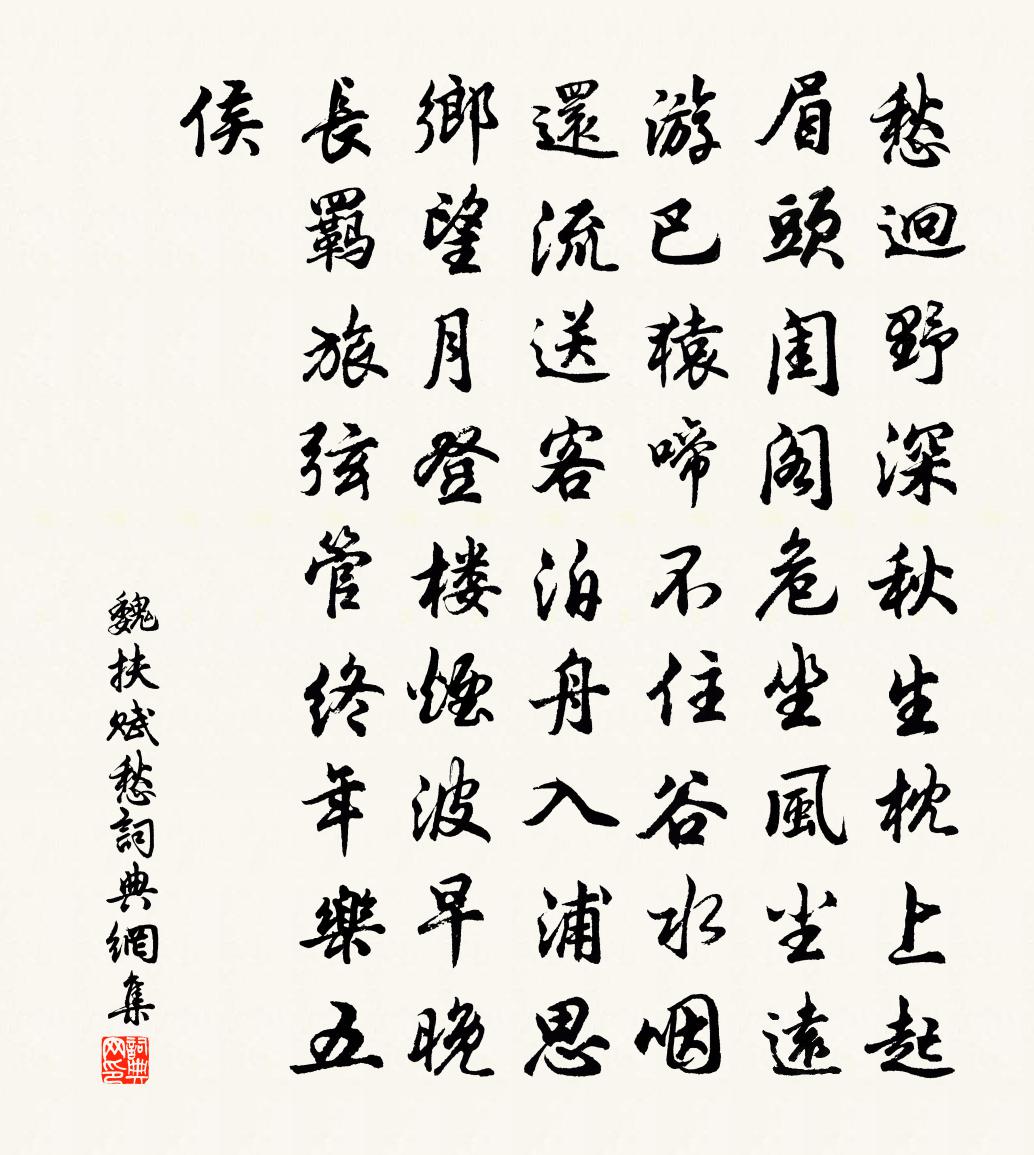 愁迥野深秋生枕上起
眉頭閨閣危坐風尘遠
游巴猿啼不住谷水咽
還流送客泊舟入浦思
鄉望月登楼煙波早晚
長羈旅弦管終年樂五
侯
魏扶賦愁詞典網集
詞典网印